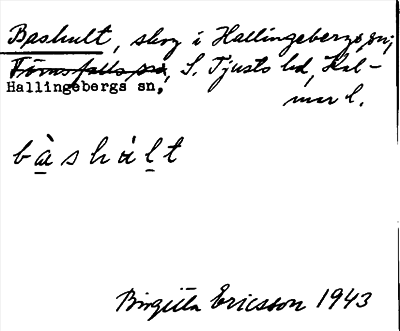 Bashult, skog i Hallingebergs sn,
Törnsfalls sn, S. Tjusts hd, Kal-
Hallingebergs sn,
mar l.
bàshàlt
Birgitta Ericsson 1943